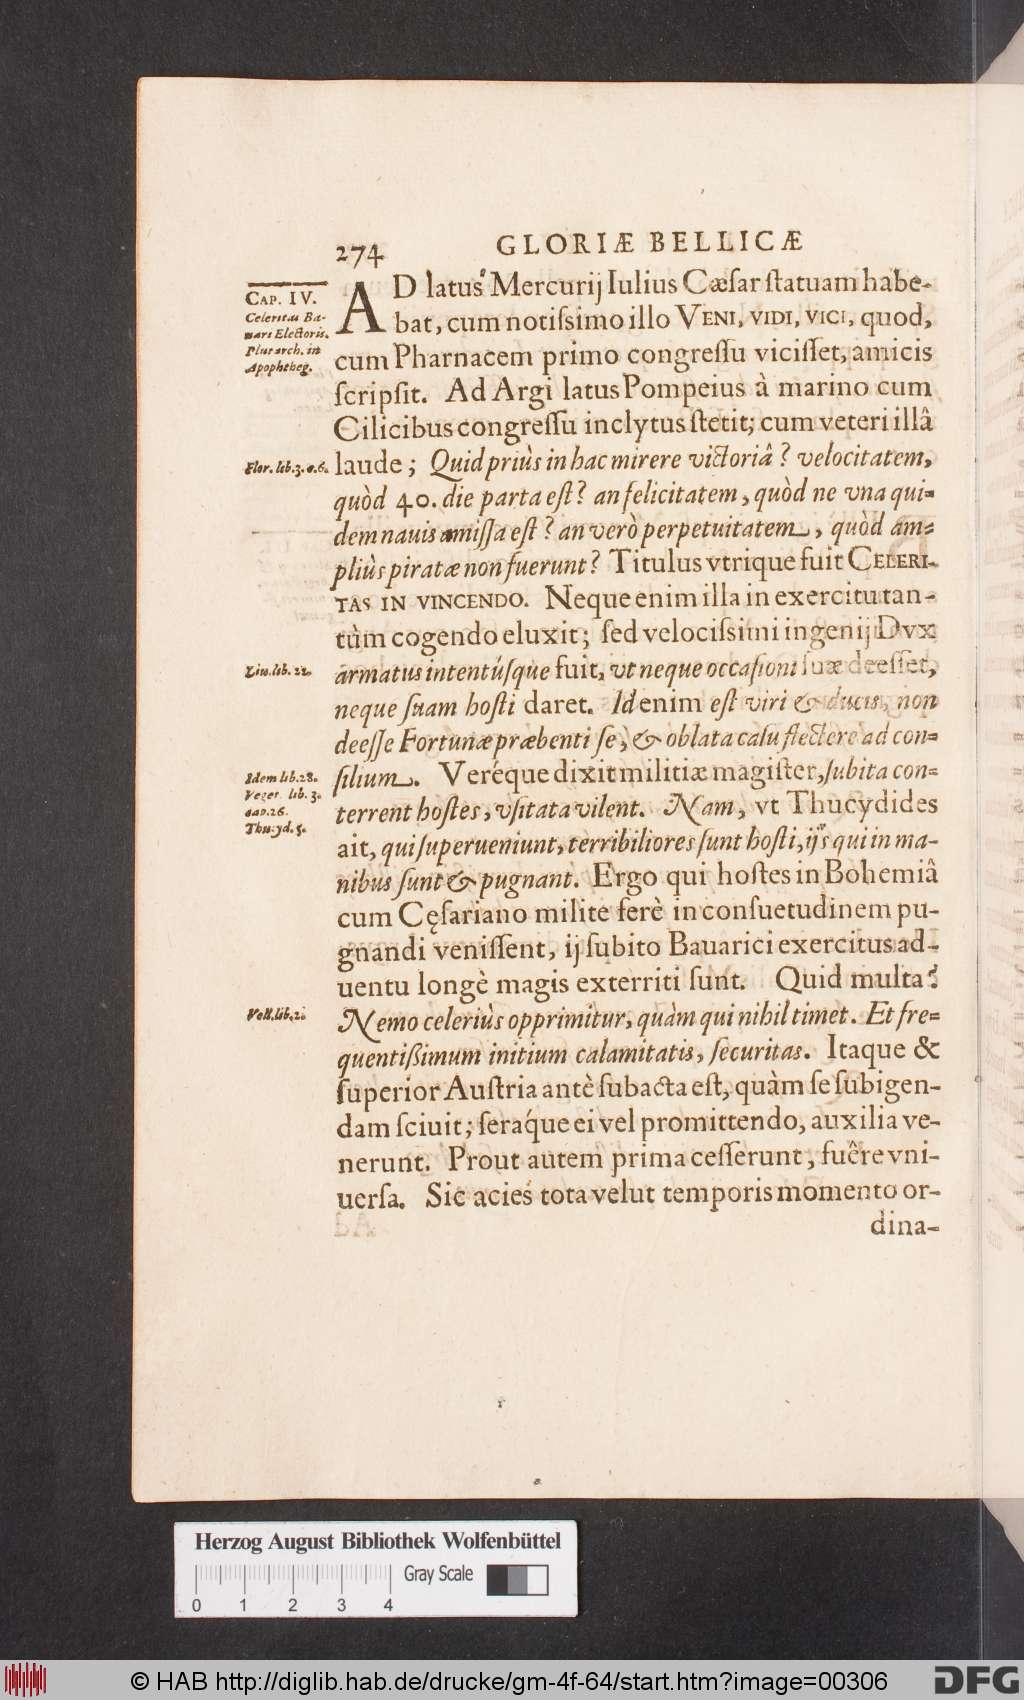 274 GLORIÆ BELLICÆ
CAP. IV.
Celeritas Ba-
uari Electoris.
Plutarch. in
Apophtheg.
AD latus Mercurij Iulius Cæſar ſtatuam habe-
bat, cum notiſsimo illo VENI, VIDI, VICI, quod,
cum Pharnacem primo congreſſu viciſſet, amicis
ſcripſit. Ad Argi latus Pompeius à marino cum
Cilicibus congreſſu inclytus ſtetit; cum veteri illâ
Flor. lib. 3. c. 6.
laude; Quid priùs in hac mirere victoriâ? velocitatem,
quòd 40. die parta eſt? an felicitatem, quòd ne vna qui-
dem nauis amiſſa eſt? an verò perpetuitatem, quòd am-
pliùs piratæ non fuerunt? Titulus vtrique fuit CELERI-
TAS IN VINCENDO. Neque enim illa in exercitu tan-
tùm cogendo eluxit; ſed velociſsimi ingenij Dvx
Liu. lib. 22.
armatus intentúſque fuit, vt neque occaſioni ſuæ deeſſet,
neque ſuam hoſti daret. Id enim eſt viri & ducis, non
deeſſe Fortunæ præbenti ſe, & oblata caſu flectere ad con-
Idem lib. 28.
Veget. lib. 3.
cap. 26.
Thucyd. 5.
ſilium. Veréque dixit militiæ magiſter, ſubita con-
terrent hoſtes, vſitata vileſnt. Nam, vt Thucydides
ait, qui ſuperueniunt, terribiliores ſunt hoſti, ijs qui in ma-
nibus ſunt & pugnant. Ergo qui hoſtes in Bohemiâ
cum Cęſariano milite ferè in conſuetudinem pu-
gnandi veniſſent, ij ſubito Bauarici exercitus ad-
uentu longè magis exterriti ſunt. Quid multa?
Vell. lib. 2.
Nemo celeriùs opprimitur, quàm qui nihil timet. Et fre-
quentißimum initium calamitatis, ſecuritas. Itaque &
ſuperior Auſtria antè ſubacta eſt, quàm ſe ſubigen-
dam ſciuit; ſeráque ei vel promittendo, auxilia ve-
nerunt. Prout autem prima ceſſerunt, fuêre vni-
uerſa. Sic acies tota velut temporis momento or-
dina-
Herzog August Bibliothek Wolfenbüttel
Gray Scale
0 1 2 3 4
© HAB http://diglib.hab.de/drucke/gm-4f-64/start.htm?image=00306
DFG